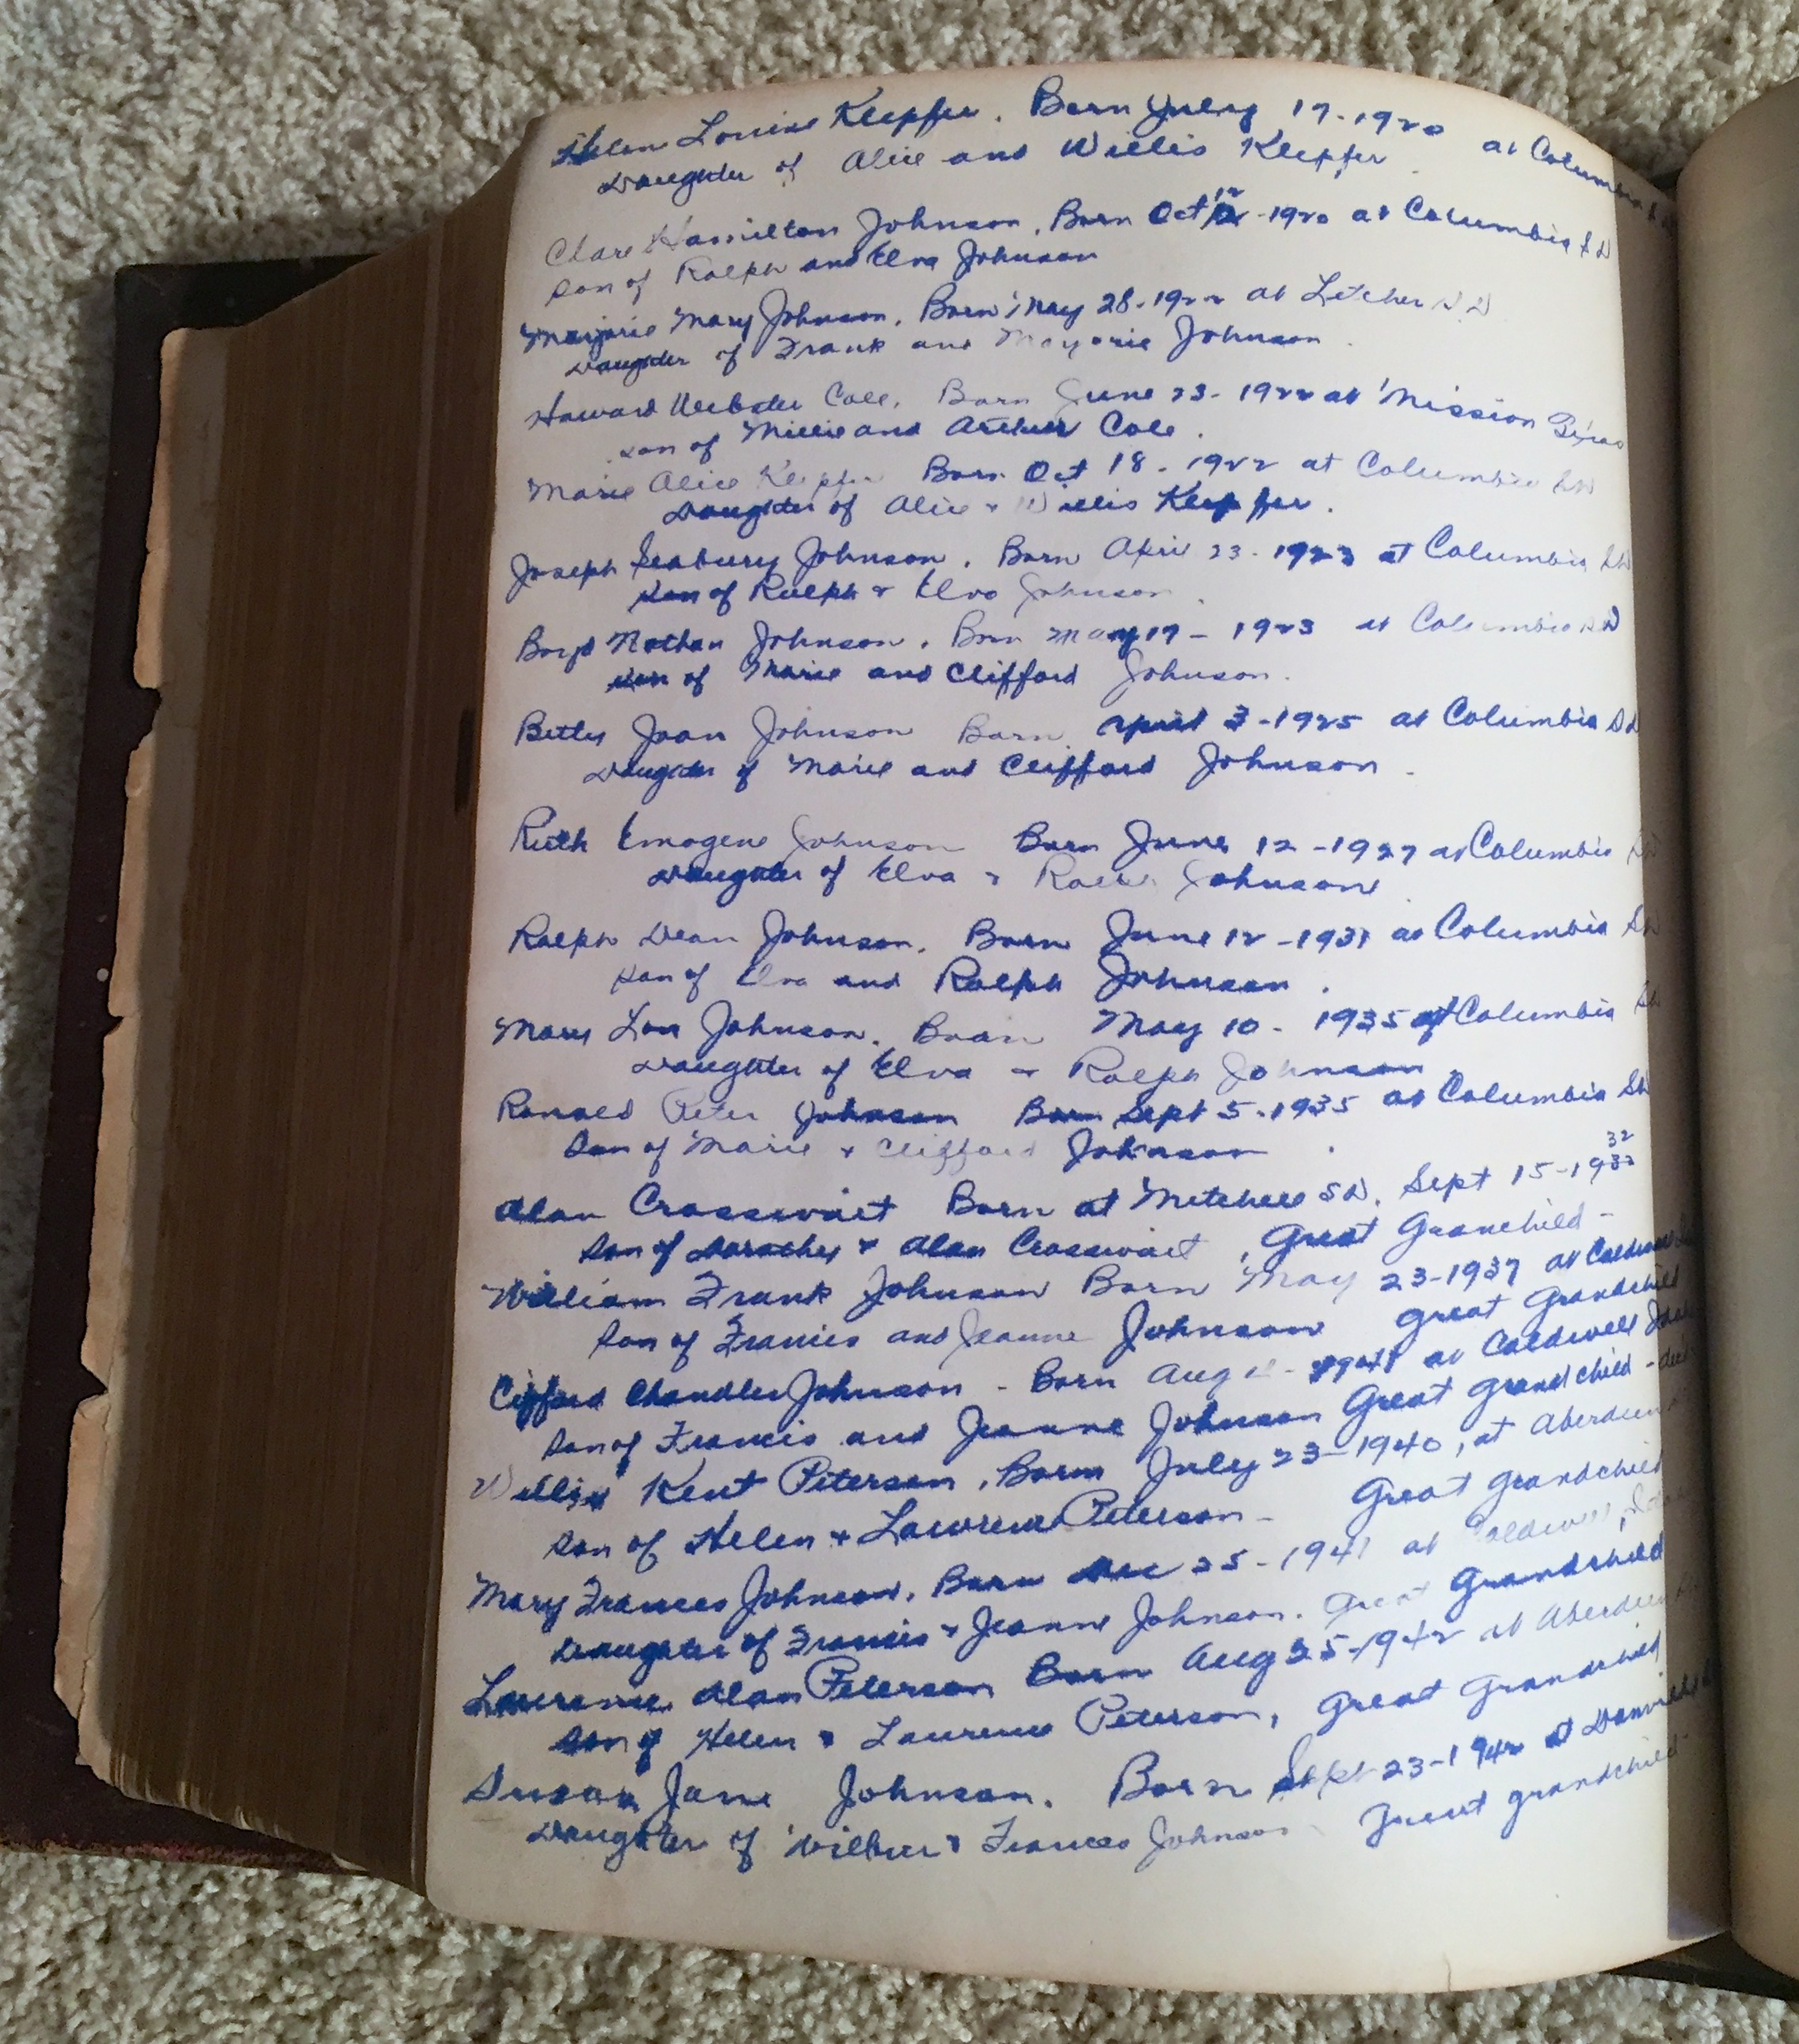 Helen Louise Klepfer. Born July 17-1920 at Columbia
Daughter of Alice and Willis Klepfer
Clare Hamilton Johnson, Born Oct 12 -1920 at Columbia S D
Son of Ralph and Elva Johnson
Marjorie Mary Johnson, Born May 28-1922 at Letcher S.D
Daughter of Frank and Marjorie Johnson
Howard Webster Cole, Born June 23-1922 at Mission Texas
son of Millie and Arthur Cole.
Marie Alice Klepfer Born Oct 18-1922 at Columbia SD
Daughter of Alice & Willis Klepfer.
Joseph Seabury Johnson, Born April 23-1923 at Columbia SD
Son of Ralph & Elva Johnson
Boyd Nathan Johnson, Born May 19-1923 at Columbia S D
son of Marie and Clifford Johnson.
Betty Joan Johnson Born April 3-1925 at Columbia S D
Daughter of Marie and Clifford Johnson.
Ruth Emogene Johnson Born June 12-1927 at Columbia SD
Daughter of Elva & Ralph Johnson
Ralph Dean Johnson, Born June 12-1931 at Columbia SD
son of Elva and Ralph Johnson.
Mary Lou Johnson. Born May 10-1935 at Columbia SD
Daughter of Elva & Ralph Johnson
Ronald Peter Johnson Born Sept 5-1935 at Columbia SD
Son of Marie & Clifford Johnson
32
Alan Crosswait Born at Mitchell S D. Sept 15-1932
Son of Dorothy & Alan Crosswait, Great Granchild-
William Frank Johnson Born May 23-1937 at Caldwell
Son of Francis and Jeanne Johnson Great Grandchild
Clifford Chandler Johnson - Born Aug 1941 at Caldwell
Son of Francis and Jeanne Johnson Great Grandchild-
Willis Kent Peterson, Born July 23-1940, at Aberdeen
Son of Helen & Lawrence Peterson- Great Grandchild
Mary Frances Johnson, Born Dec 25-1941 at Caldwell,
Daughter of Francis & Jeanne Johnson. Great Grandchild
Laurence Alan Peterson Born Aug 25-1942 at Aberdeen
Son of Helen & Laurence Peterson, Great Grandchild
Susan Jane Johnson. Born Sept 23-1942 at
Daughter of Wilbur & Frances Johnson Great grandchild-